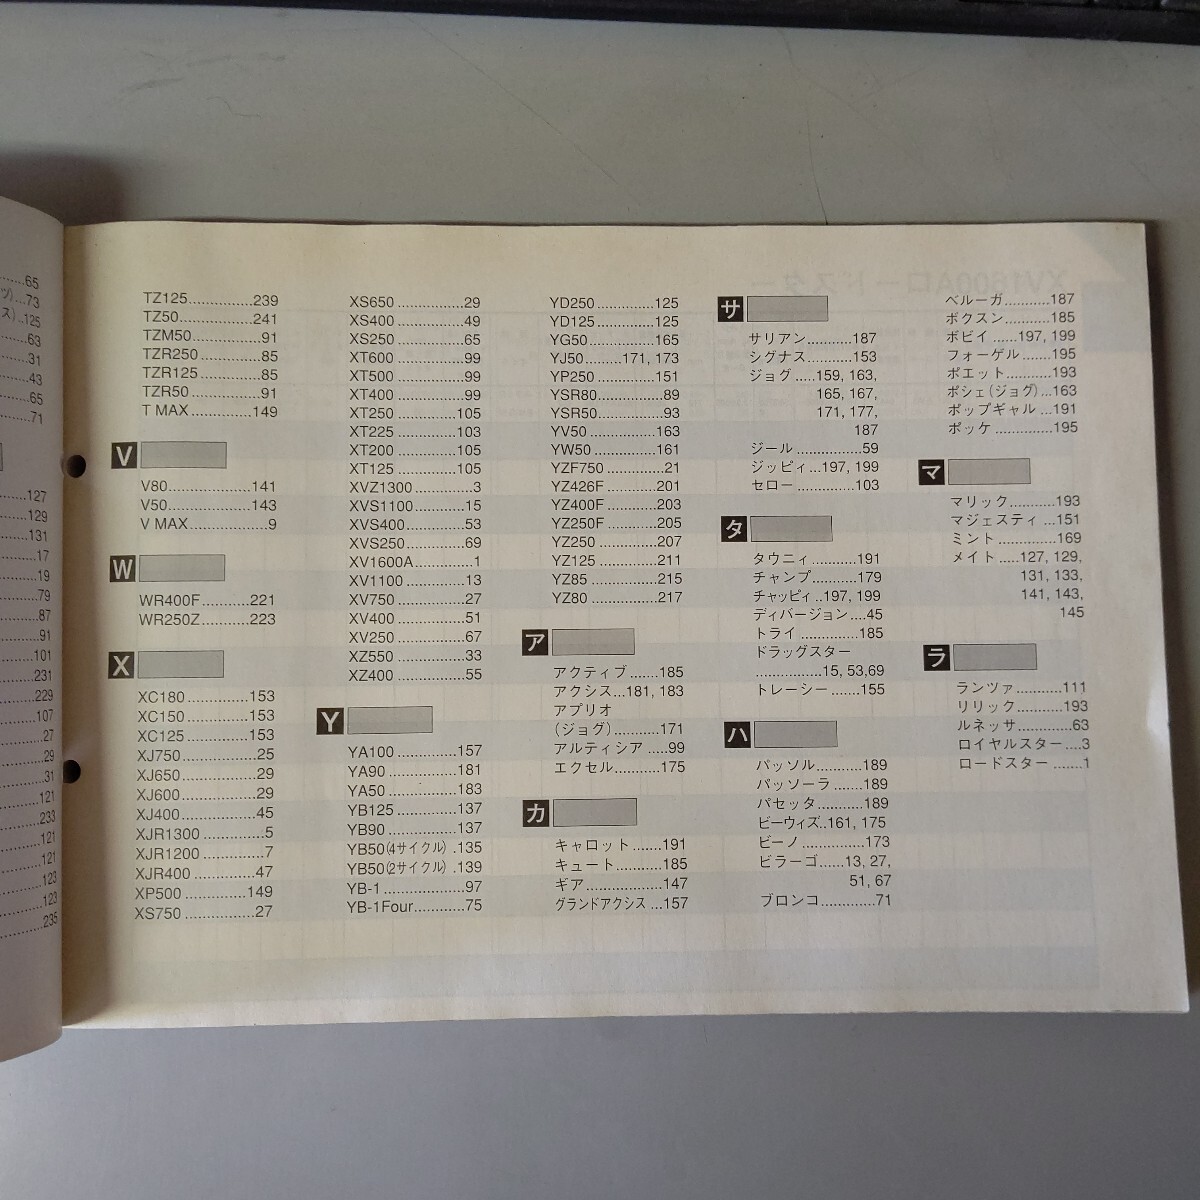 65
ツ)...73
ス)..125
63
31
43
65
71
127
129
131
17
19
79
87
91
101
231
229
107
27
29
31
121
233
121
121
123
123
235
TZ125...............239
TZ50.................241
TZM50................91
TZR250...............85
TZR125...............85
TZR50................91
T MAX..............149
V
V80....................141
V50....................143
V MAX...................9
W
WR400F...........221
WR250Z............223
X
XC180...............153
XC150...............153
XC125...............153
XJ750..................25
XJ650..................29
XJ600..................29
XJ400..................45
XJR1300...............5
XJR1200...............7
XJR400...............47
XP500...............149
XS750.................27
XS650...............29
XS400...............49
XS250...............65
XT600...............99
XT500...............99
XT400...............99
XT250.............105
XT225.............103
XT200.............105
XT125.............105
XVZ1300..............3
XVS1100.............15
XVS400..............53
XVS250..............69
XV1600A..............1
XV1100...............13
XV750................27
XV400................51
XV250................67
XZ550................33
XZ400................55
Y
YA100..............157
YA90................181
YA50................183
YB125..............137
YB90................137
YB50(4サイクル).135
YB50(2サイクル).139
YB-1....................97
YB-1Four............75
YD250..............125
YD125..............125
YG50................165
YJ50.........171, 173
YP250..............151
YSR80................89
YSR50................93
YV50................163
YW50...............161
YZF750..............21
YZ426F............201
YZ400F............203
YZ250F............205
YZ250..............207
YZ125..............211
YZ85................215
YZ80................217
ア
アクティブ.......185
アクシス...181, 183
アプリオ
(ジョグ)...........171
アルティシア.....99
エクセル...........175
カ
キャロット.......191
キュート...........185
ギア..................147
グランドアクシス...157
サ
サリアン...........187
シグナス...........153
ジョグ.....159, 163,
165, 167,
171, 177,
187
ジール..................59
ジッピィ...197, 199
セロー..............103
タ
タウニィ...........191
チャンプ...........179
チャッピィ..197, 199
ディバージョン....45
トライ..............185
ドラッグスター
................15, 53,69
トレーシー.......155
ハ
パッソル...........189
パッソーラ.......189
パセッタ...........189
ビーウィズ..161, 175
ビーノ..............173
ビラーゴ......13, 27,
51, 67
ブロンコ.............71
ベルーガ...........187
ボクスン...........185
ボビイ.......197, 199
フォーゲル.......195
ポエット...........193
ポシェ(ジョグ)...163
ポップギャル...191
ポッケ..............195
マ
マリック...........193
マジェスティ...151
ミント..............169
メイト.....127, 129,
131, 133,
141, 143,
145
ラ
ランツァ...........111
リリック...........193
ルネッサ.............63
ロイヤルスター....3
ロードスター.......1